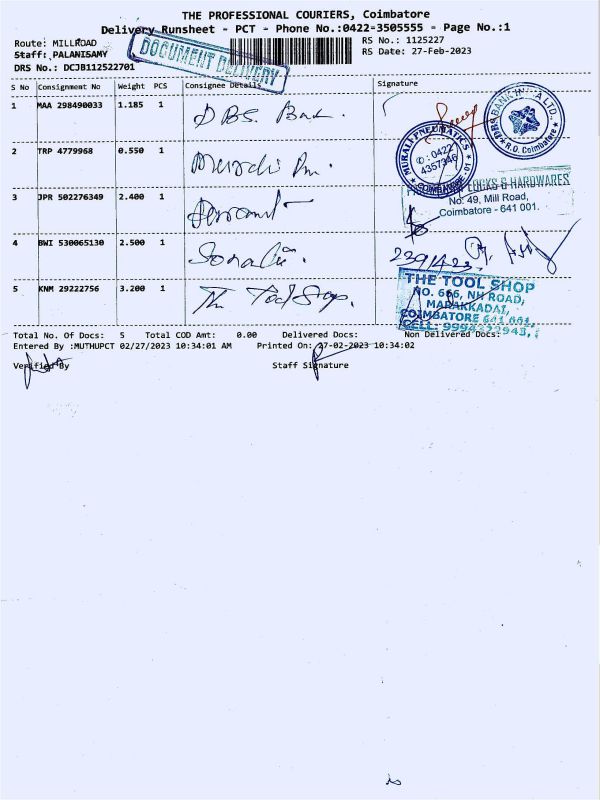 THE PROFESSIONAL COURIERS, Coimbatore
Delivery Runsheet - PCT - Phone No.:0422-3505555 - Page No.:1
Route: MILLROAD
RS No.: 1125227
Staff: PALANISAMY
RS Date: 27-Feb-2023
DRS No.: DCJB112522701
DOCUMENT DELIVERY
S No Consignment No Weight PCS Consignee Details Signature
1 MAA 298490033 1.185 1 DBS Bank.
2 TRP 4779968 0.550 1
3 JPR 502276349 2.400 1
4 BWI 530065130 2.500 1
5 KNM 29222756 3.200 1 The Tool Shop.
DBS BANK INDIA LTD.
R.O. Coimbatore
MURALI PNEUMATICS
✆ : 0422
4357946
COIMBATORE
LOCKS & HARDWARES
No: 49, Mill Road,
Coimbatore - 641 001.
THE TOOL SHOP
NO. 666, NH ROAD,
MARAKKADAI,
COIMBATORE 641 001.
CELL:
Total No. Of Docs: 5 Total COD Amt: 0.00 Delivered Docs: Non Delivered Docs:
Entered By :MUTHUPCT 02/27/2023 10:34:01 AM Printed On: 27-02-2023 10:34:02
Verified By Staff Signature